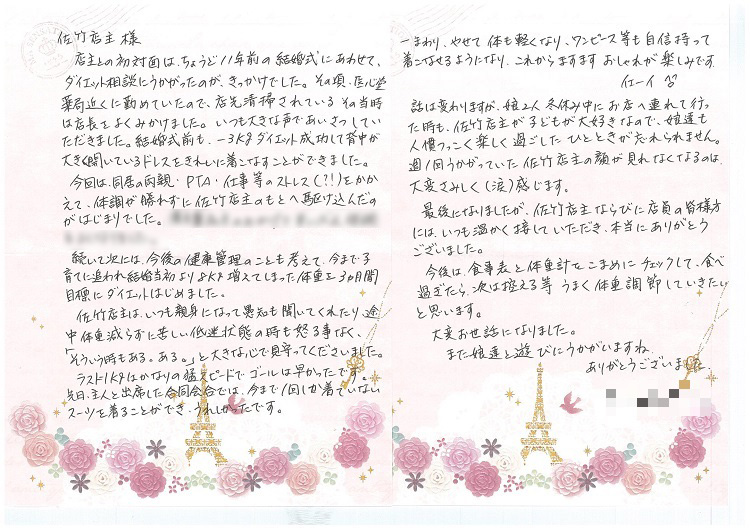 佐竹店主様
店主との初対面は、ちょうど11年前の結婚式にあわせて、
ダイエット相談にうかがったのが、きっかけでした。その頃、医心堂
薬局近くに勤めていたので、店先清掃されている その当時
は店長をよくみかけました。いつも大きな声であいさつしてい
ただきました。結婚式前も、-3Kgダイエット成功して背中が
大きく開いているドレスをきれいに着こなすことができました。
今回は、同居の両親・PTA・仕事等のストレス(?!)をかか
えて、体調が勝れずに佐竹店主のもとへ駆け込んだの
がはじまりでした。
続いて次には、今後の健康管理のことも考えて、今まで子
育てに追われ結婚当初より8Kg増えてしまった体重を3ヵ月間
目標にダイエットはじめました。
佐竹店主は、いつも親身になって愚知も聞いてくれたり、途
中体重減らずに苦しい低迷状態の時も怒る事なく、
「そういう時もある。ある。」と大きな心で見守ってくださいました。
ラスト1Kgはかなりの猛スピードでゴールは早かったです。
先日、主人と出席した合同会合では、今まで1回しか着ていない
スーツを着ることができ、うれしかったです。
一まわり、やせて 体も軽くなり、ワンピース等も自信持って
着こなせるようになり、これからますます おしゃれが楽しみです。
イェーイ
話は変わりますが、娘2人 冬休み中に お店へ連れて行っ
た時も、佐竹店主が子どもが大好きなので、娘達も
人懐っこく楽しく過ごした ひとときが忘れられません。
週1回うかがっていた 佐竹店主の顔が見れなくなるのは、
大変さみしく(涙)感じます。
最後になりましたが、佐竹店主ならびに店員の皆様方
には、いつも温かく接していただき、本当にありがとう
ございました。
今後は、食事表と体重計をこまめにチェックして、食べ
過ぎたら、次は控える等 うまく体重調節していきたい
と思います。
大変お世話になりました。
また娘達と遊びにうかがいますね。
ありがとうございました。